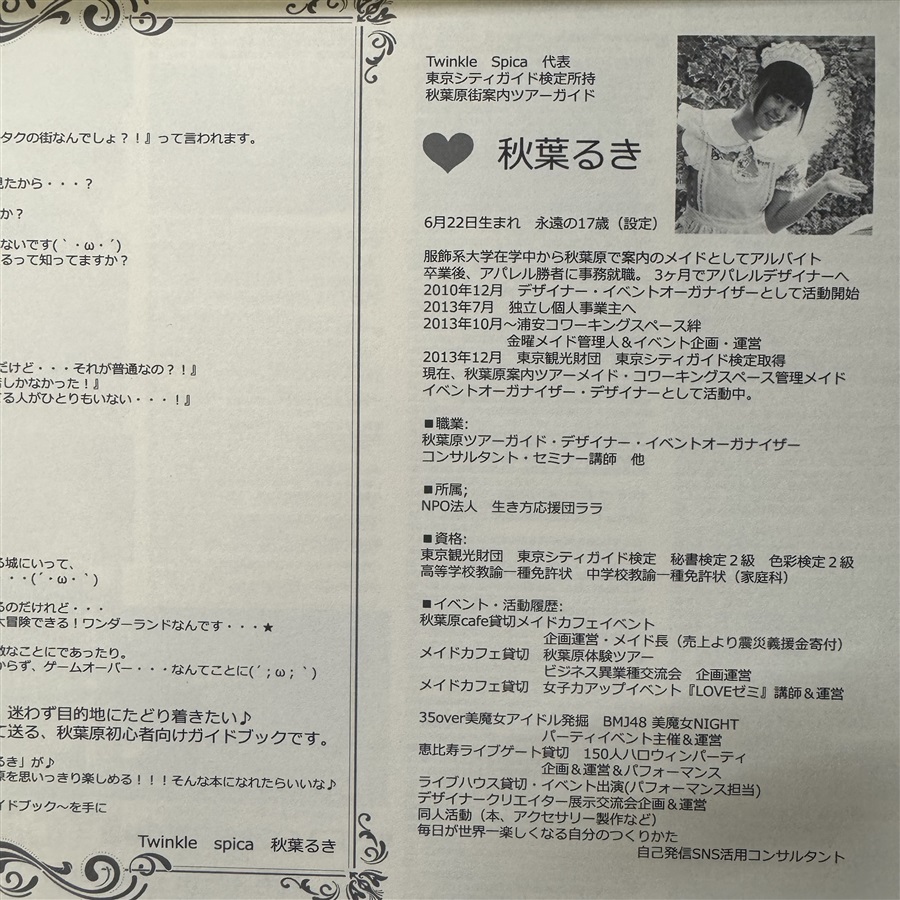 タクの街なんでしょ？！』って言われます。
見たから・・・？
か？
ないです(｀・ω・´)
るって知ってますか？
だけど・・・それが普通なの？！』
しかなかった！』
てる人がひとりもいない・・・！』
る城にいって、
・・(´・ω・｀)
るのだけれど・・・
大冒険できる！ワンダーランドなんです・・・★
敵なことにであったり。
からず、ゲームオーバー・・・なんてことに(´；ω；｀)
迷わず目的地にたどり着きたい♪
て送る、秋葉原初心者向けガイドブックです。
るき」が♪
原を思いっきり楽しめる！！！そんな本になれたらいいな♪
イドブック〜を手に
Twinkle spica 秋葉るき
Twinkle Spica 代表
東京シティガイド検定所持
秋葉原街案内ツアーガイド
♥ 秋葉るき
6月22日生まれ 永遠の17歳（設定）
服飾系大学在学中から秋葉原で案内のメイドとしてアルバイト
卒業後、アパレル勝者に事務就職。 3ヶ月でアパレルデザイナーへ
2010年12月 デザイナー・イベントオーガナイザーとして活動開始
2013年7月 独立し個人事業主へ
2013年10月〜浦安コワーキングスペース絆
金曜メイド管理人＆イベント企画・運営
2013年12月 東京観光財団 東京シティガイド検定取得
現在、秋葉原案内ツアーメイド・コワーキングスペース管理メイド
イベントオーガナイザー・デザイナーとして活動中。
■職業:
秋葉原ツアーガイド・デザイナー・イベントオーガナイザー
コンサルタント・セミナー講師 他
■所属;
NPO法人 生き方応援団ララ
■資格:
東京観光財団 東京シティガイド検定 秘書検定２級 色彩検定２級
高等学校教諭一種免許状 中学校教諭一種免許状（家庭科）
■イベント・活動履歴:
秋葉原cafe貸切メイドカフェイベント
企画運営・メイド長（売上より震災義援金寄付）
メイドカフェ貸切 秋葉原体験ツアー
ビジネス異業種交流会 企画運営
メイドカフェ貸切 女子力アップイベント『LOVEゼミ』講師＆運営
35over美魔女アイドル発掘 BMJ48 美魔女NIGHT
パーティイベント主催＆運営
恵比寿ライブゲート貸切 150人ハロウィンパーティ
企画＆運営＆パフォーマンス
ライブハウス貸切・イベント出演(パフォーマンス担当)
デザイナークリエイター展示交流会企画＆運営
同人活動（本、アクセサリー製作など）
毎日が世界一楽しくなる自分のつくりかた
自己発信SNS活用コンサルタント